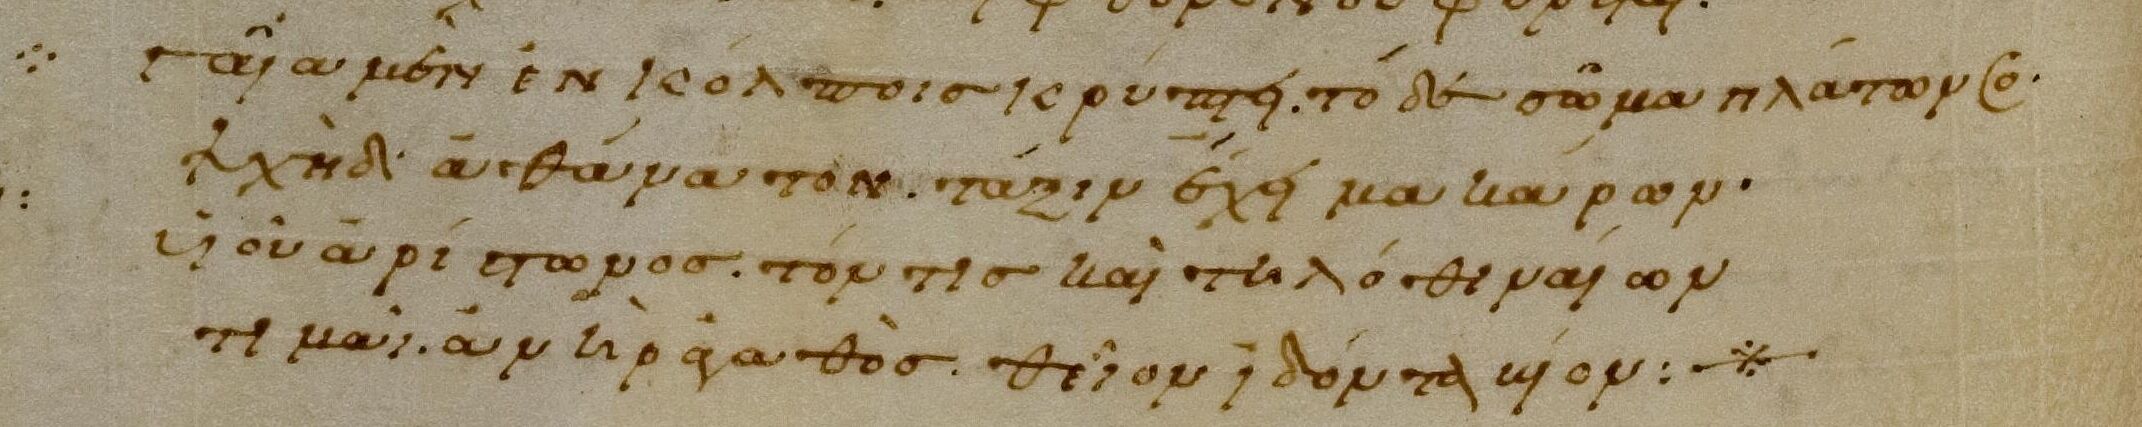 γαῖα μὲν ἐν κόλποισ κρύπτει. τό δε σῶμα πλάτωνος·
ψυχὴ δ' ἀθάνατον. τάξιν ἔχει μακάρων·
υἱοῦ ἀρίστωνοσ. τόν τισ καὶ τηλόθι ναίων
τιμᾶι. ἀνὴρ ἀγαθὸσ. θεῖον ἰδόντα βίον: